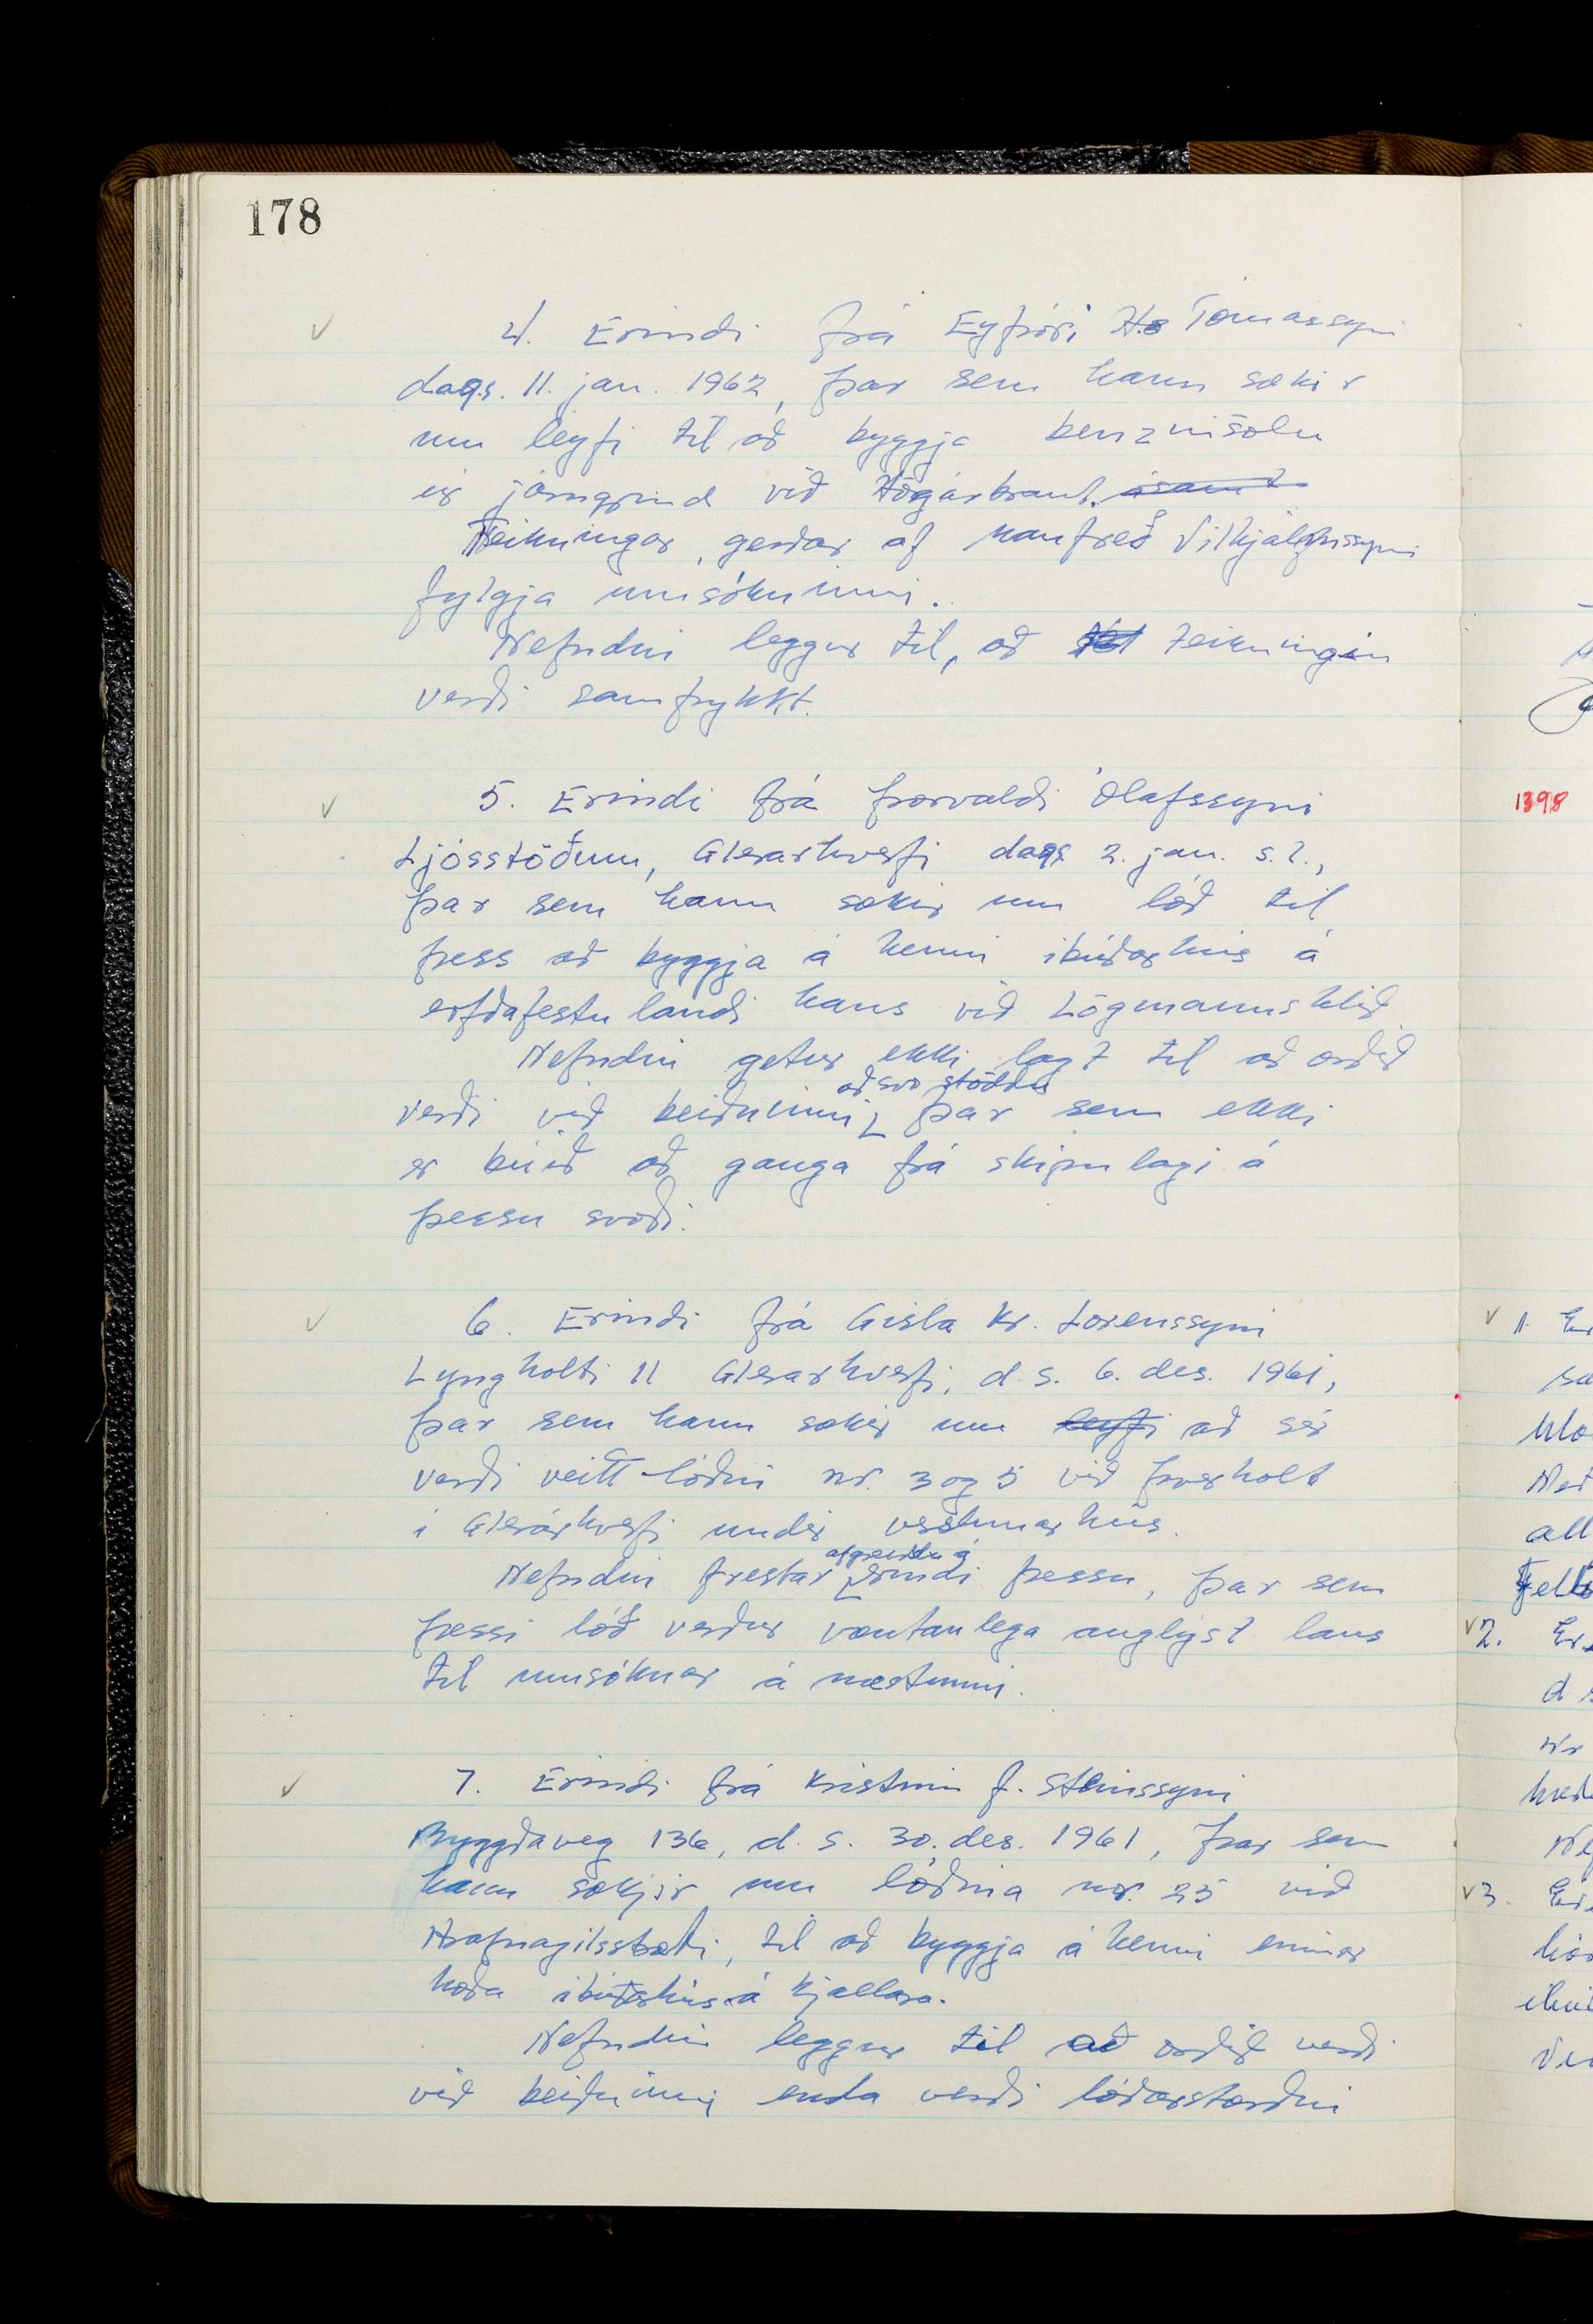 178
4. Erindi frá Eyþóri H. Tómassyni
dags. 11. jan. 1962, þar sem hann sækir
um leyfi til að byggja benzinsölu
úr járngrind við Hörgárbraut. ásamt
Teikningar, gerðar af Manfreð Vilhjálmssyni
fylgja umsókninni.
Nefndin leggur til, að teikningin
verði samþykkt.
5. Erindi frá Þorvaldi Ólafssyni
Ljósstöðum, Glerárhverfi dags. 2. jan. s.l.,
þar sem hann sækir um lóð til
þess að byggja á henni íbúðarhús á
erfðafestulandi hans við Lögmannshlíð
Nefndin getur ekki lagt til að orðið
að svo stöddu
verði við beiðninni, þar sem ekki
er búið að ganga frá skipulagi á
þessu svæði.
6. Erindi frá Gísla Kr. Lorenssyni
Lyngholti 11 Glerárhverfi, d.s. 6. des. 1961,
þar sem hann sækir um leyfi að sér
verði veitt lóðin nr. 3 og 5 við Þverholt
í Glerárhverfi undir verstunarhús.
afgreiðslu á
Nefndin frestar erindi þessu, þar sem
þessi lóð verður væntanlega auglýst laus
til umsóknar á næstunni.
7. Erindi frá Kristinn Þ. Steinssyni
Byggðaveg 136, d.s. 30. des. 1961, þar sem
hann sækjir um lóðina nr. 35 við
Hrafnagilsstræti, til að byggja á henni einnar
hæða íbúðarhús á kjallara.
Nefndin leggur til að orðið verði
við beiðninni enda verði lóðarstærðin
1398
1. Er
Með
all
2. Er
nr
3.